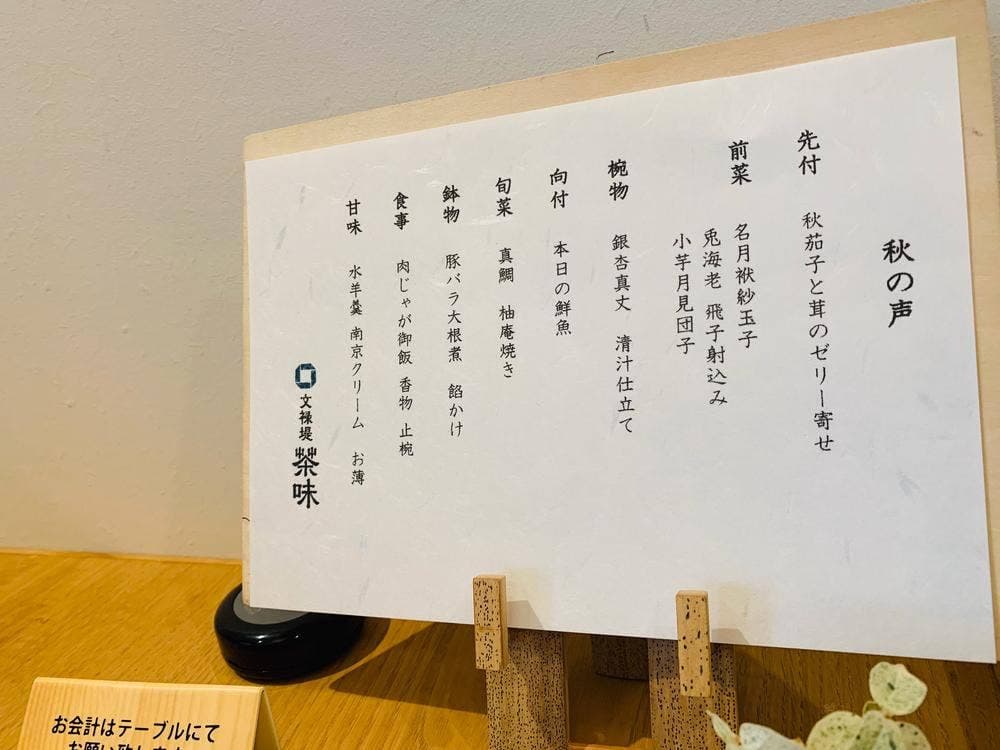 秋の声
先付 秋茄子と茸のゼリー寄せ
前菜 名月袱紗玉子
兎海老 飛子射込み
小芋月見団子
椀物 銀杏真丈 清汁仕立て
向付 本日の鮮魚
旬菜 真鯛 柚庵焼き
鉢物 豚バラ大根煮 餡かけ
食事 肉じゃが御飯 香物 止椀
甘味 水羊羹 南京クリーム お薄
文禄堤 茶味
お会計はテーブルにて
お願い致します